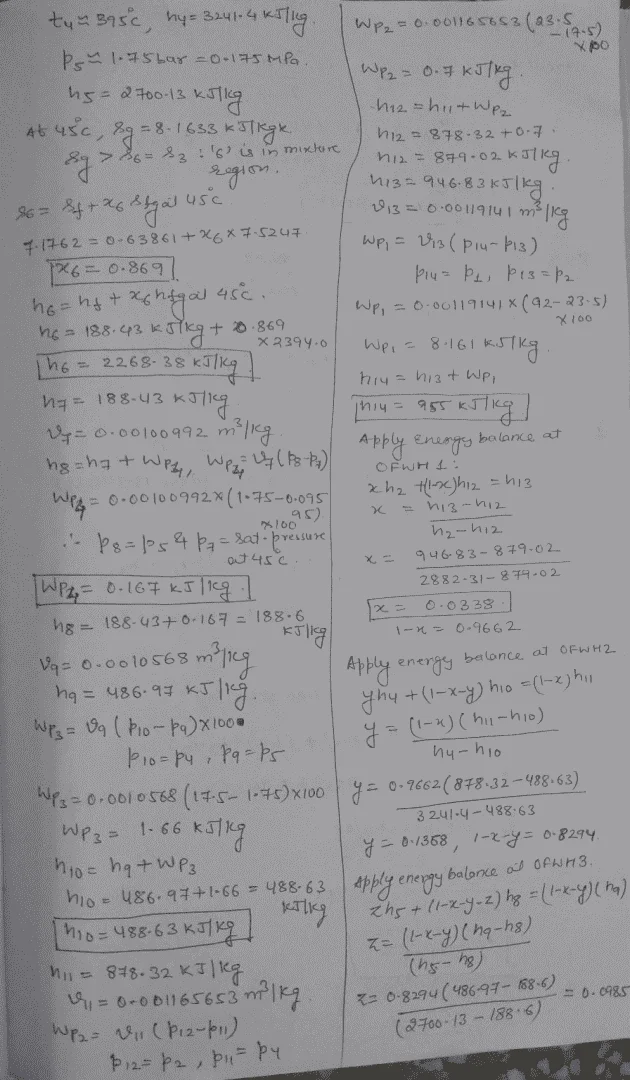 t4 ≈ 395°C, h4 = 3241.4 kJ/kg.
P5 ≈ 1.75 bar = 0.175 MPa.
h5 = 2700.13 kJ/kg
At 45°C, Sg = 8.1633 kJ/kgK
Sg > S6 = S3 : '6' is in mixture region.
S6 = Sf + x6 Sfg at 45°C
7.1762 = 0.63861 + x6 × 7.5247
x6 = 0.869
h6 = hf + x6 hfg at 45°C.
h6 = 188.43 kJ/kg + 0.869 × 2394.0
h6 = 2268.38 kJ/kg
h7 = 188.43 kJ/kg
V7 = 0.00100992 m³/kg
h8 = h7 + Wp4, Wp4 = V7 (P8 - P7)
Wp4 = 0.00100992 × (1.75 - 0.09595) × 100
∴ P8 = P5 & P7 = sat. pressure at 45°C.
Wp4 = 0.167 kJ/kg
h8 = 188.43 + 0.167 = 188.6 kJ/kg
V9 = 0.0010568 m³/kg
h9 = 486.97 kJ/kg.
Wp3 = V9 (P10 - P9) × 100
P10 = P4, P9 = P5
Wp3 = 0.0010568 (17.5 - 1.75) × 100
Wp3 = 1.66 kJ/kg
h10 = h9 + Wp3
h10 = 486.97 + 1.66 = 488.63 kJ/kg
h10 = 488.63 kJ/kg
h11 = 878.32 kJ/kg
V11 = 0.001165653 m³/kg
Wp2 = V11 (P12 - P11)
P12 = P2, P11 = P4
Wp2 = 0.001165653 (23.5 - 17.5) × 100
Wp2 = 0.7 kJ/kg.
h12 = h11 + Wp2
h12 = 878.32 + 0.7.
h12 = 879.02 kJ/kg.
h13 = 946.83 kJ/kg.
V13 = 0.00119141 m³/kg
Wp1 = V13 (P14 - P13)
P14 = P1, P13 = P2
Wp1 = 0.00119141 × (92 - 23.5) × 100
Wp1 = 8.161 kJ/kg
h14 = h13 + Wp1
h14 = 955 kJ/kg
Apply energy balance at
OFWH 1:
x h2 + (1-x) h12 = h13
x = h13 - h12
h2 - h12
x = 946.83 - 879.02
2882.31 - 879.02
x = 0.0338
1-x = 0.9662
Apply energy balance at OFWH2
yh4 + (1-x-y) h10 = (1-x) h11
y = (1-x)(h11 - h10)
h4 - h10
y = 0.9662 (878.32 - 488.63)
3241.4 - 488.63
y = 0.1368, 1-x-y = 0.8294
Apply energy balance at OFWH3.
zh5 + (1-x-y-z) h8 = (1-x-y)(h9)
z = (1-x-y)(h9 - h8)
(h5 - h8)
z = 0.8294 (486.97 - 188.6) = 0.0985
(2700.13 - 188.6)